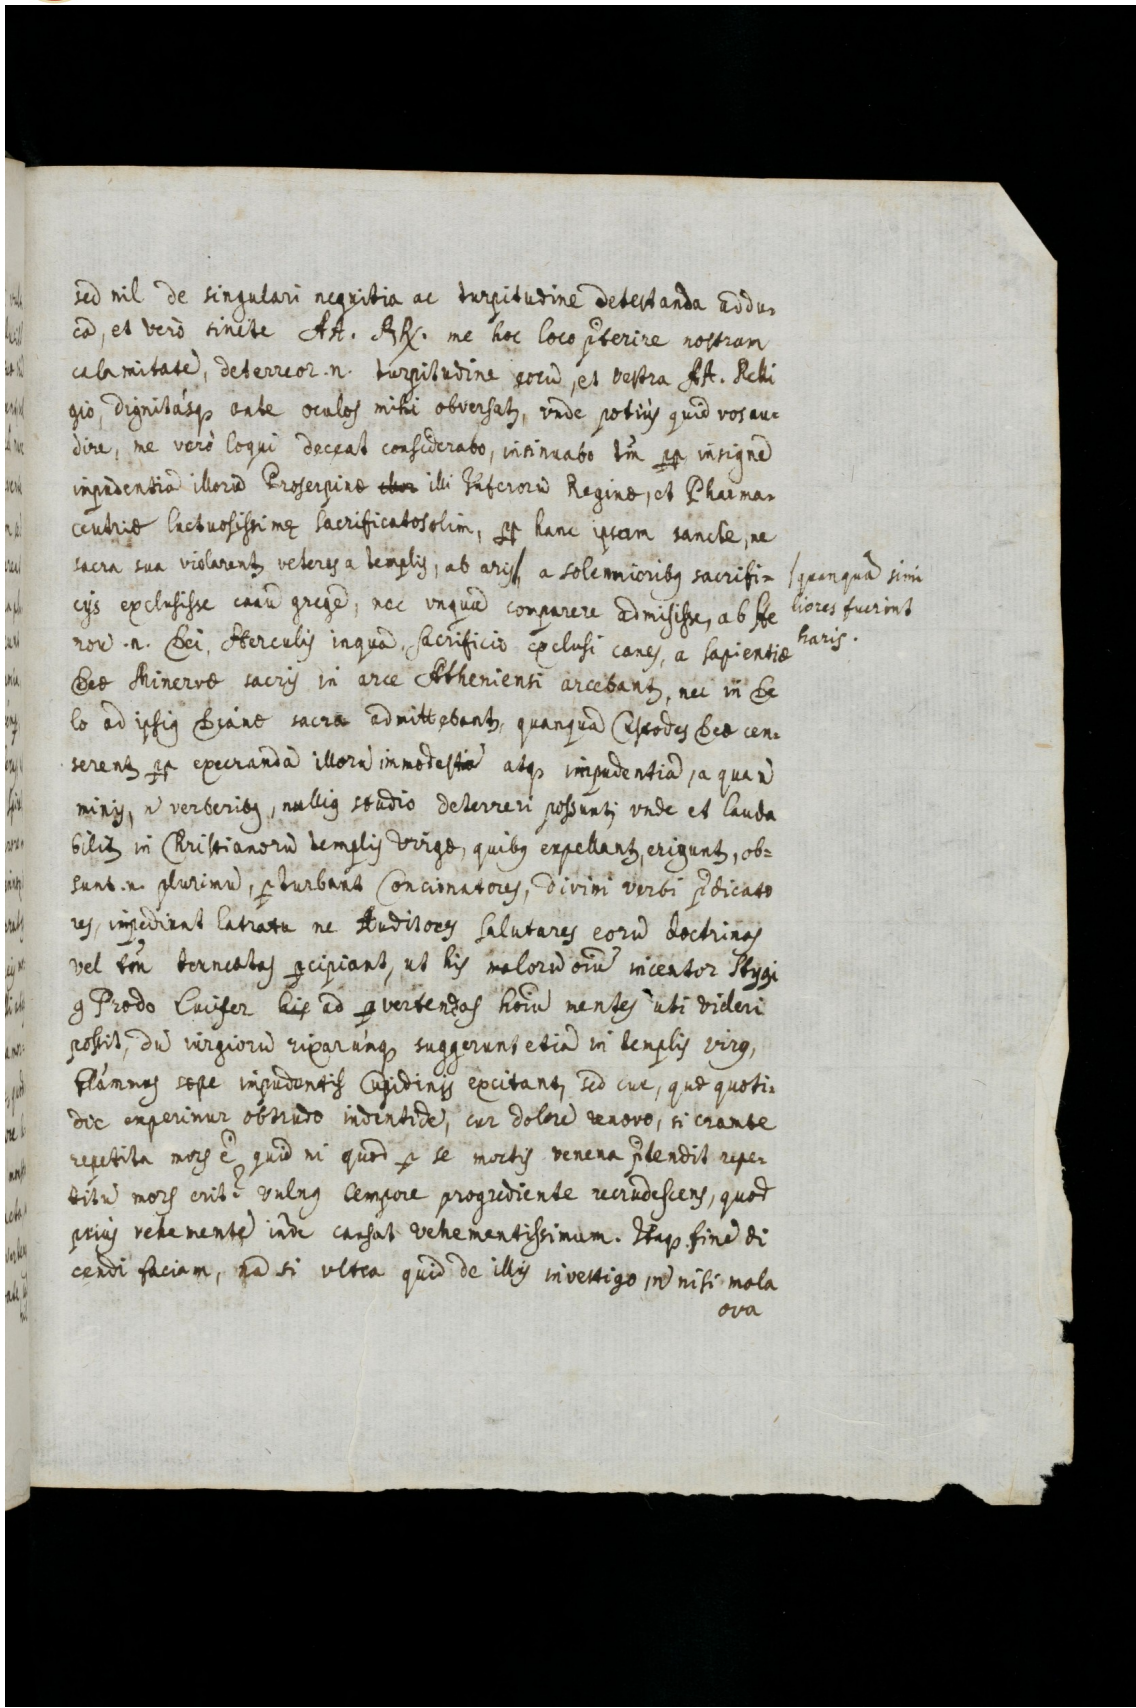 sed nil de singulari nequitia ac turpitudine detestanda addu-
cā, et verò sinite AA. RR. me hoc loco p̃terire nostram
calamitatē, deterreor .n. turpitudine eorū, et vestra AA. Relli
gio, dignitásq; ante oculos mihi obversatꝫ, vnde potiùs quid vos au-
dire, me verò loqui deceat considerabo, insinuabo tm̃ ꝓp insignē
inpudentiā illorū Proserpinæ illi Inferorū Reginæ, et Pharma-
ceutriæ luctuosissimę sacrificatos olim, ꝓp hanc ipsam sancte, ne
sacra sua violarentꝫ veteres a templis, ab aris/, a solemnioribꝰ sacrifi-
/quanquā simi
cijs exclusisse canū gregē, nec vnquā comparere admisisse, ab He
liores fuerint
rou .n. Dei, Herculis inquā, sacrificio exclusi canes, a sapientiæ
haris.
Deæ Minervæ sacris in arce Atheniensi arcebantꝫ, nec in De
lo ad ipsiꝰ Diánæ sacra admittebantꝫ, quanquā Custodes Deæ cen-
serentꝫ ꝓp execrandā illorū immodestiā atq; impudentiā, a qua ñ
minis, ñ verberibꝰ, nulliꝰ studio deterreri possunt, vnde et lauda
bilitꝫ in Christianorū templis virgæ, quibꝰ expellantꝫ, eriguntꝫ, ob-
sunt .n. plurimū, ꝑturbant Concionatores, divini verbi p̃dicato
res, impediunt latratu ne Auditores salutares eorū doctrinas
vel tm̃ truncatas ꝑcipiant, ut his malorū oīū incentor Stygi
ꝰ Prædo Lucifer ad ꝑvertendas hoīū mentes uti videri
possit, dū iurgiorū rixarúmq; suggerunt etiā in templis virꝰ,
flámmas sæpe inpudentis Cupidinis excitant, sed cur, quæ quoti-
die experimur obtrudo indentidē, cur dolorē renovo, si crambe
repetita mors ẽ, quid ni quod ꝑ se mortis venena p̃tendit repe-
titū mors erit? vulnꝰ tempore progrediente recrudescens, quod
priùs vehementē inde causat vehementissimum. Itaq; finē di
cendi faciam, nā si vltra quid de illis investigo, ñ nisi mala
ova